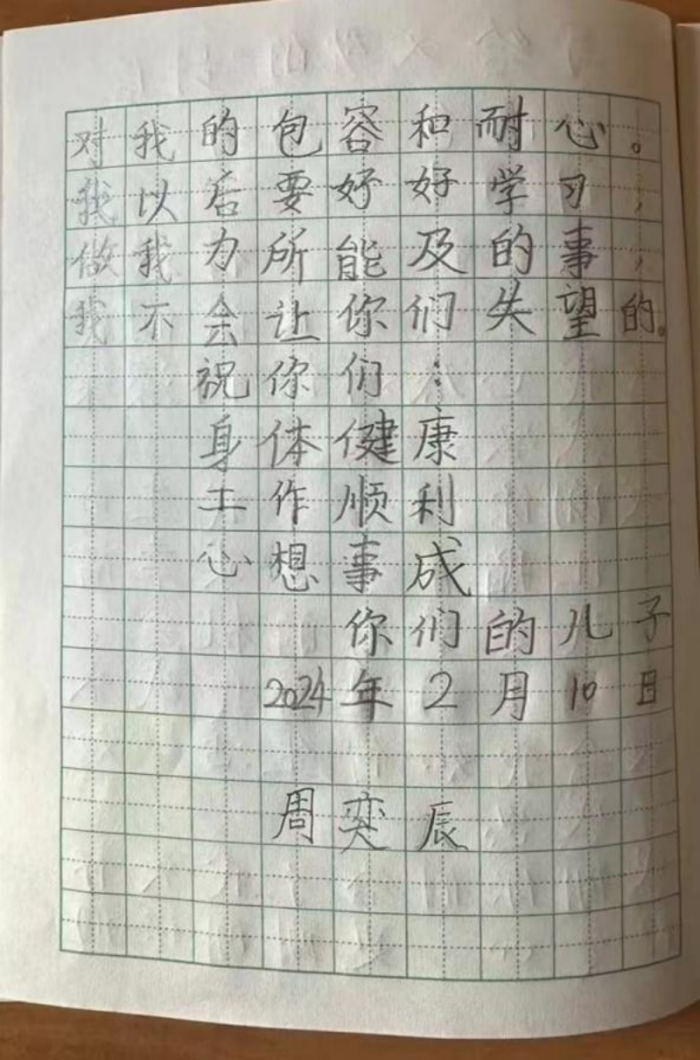 对我的包容和耐心。
我以后要好好学习，
做我力所能及的事，
我不会让你们失望的。
祝你们：
身体健康
工作顺利
心想事成
你们的儿子
2024年2月10日
周奕辰